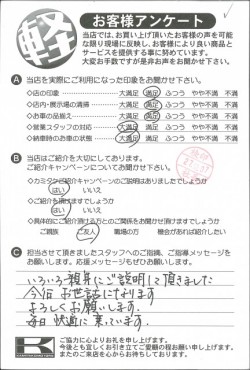 軽
お客様アンケート
当店では、お買い上げ頂いたお客様の声を可能
な限り現場に反映し、お客様により良い商品と
サービスを提供する事に努めています。
大変お手数ですが是非お声をお聞かせ下さい。
A 当店を実際にご利用になった印象をお聞かせ下さい。
◇店の印象 大満足 満足 ふつう やや不満 不満
◇店内・展示場の清掃 大満足 満足 ふつう やや不満 不満
◇お車の品揃え 大満足 満足 ふつう やや不満 不満
◇営業スタッフの対応 大満足 満足 ふつう やや不満 不満
◇納車時のお車の状態 大満足 満足 ふつう やや不満 不満
B 当店はご紹介を大切にしてあります。
ご紹介キャンペーンについてお聞かせ下さい。
◇カミタケ紹介キャンペーンのご説明はありましたでしょうか
はい いいえ
◇ご紹介を頂けますでしょうか
はい いいえ
◇具体的にご紹介頂ける方とのご関係をお聞かせ頂けますでしょうか
ご親戚 ご友人 職場の方 機会があれば紹介したい
C 担当させて頂きましたスタッフへのご指摘、ご指導メッセージを
お願いします。応援メッセージもぜひお願いします。
いろいろ親身にご説明して頂きました
今後お世話になります
よろしくお願いします。
毎日快適に乗っています。
K
ご協力に心よりお礼を申し上げます。
今後とも宜しくお引き立てご愛顧の程お願い申し上げます。
またのご来店を心からお待ちしております。